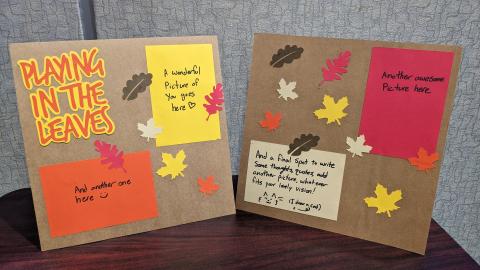 PLAYING
IN THE
LEAVES
A wonderful
Picture of
You goes
here ♡
And another one
here
Another awesome
Picture here
And a final spot to write
Some thoughts, quotes, add
another picture, whatever
fits your lovely vision!